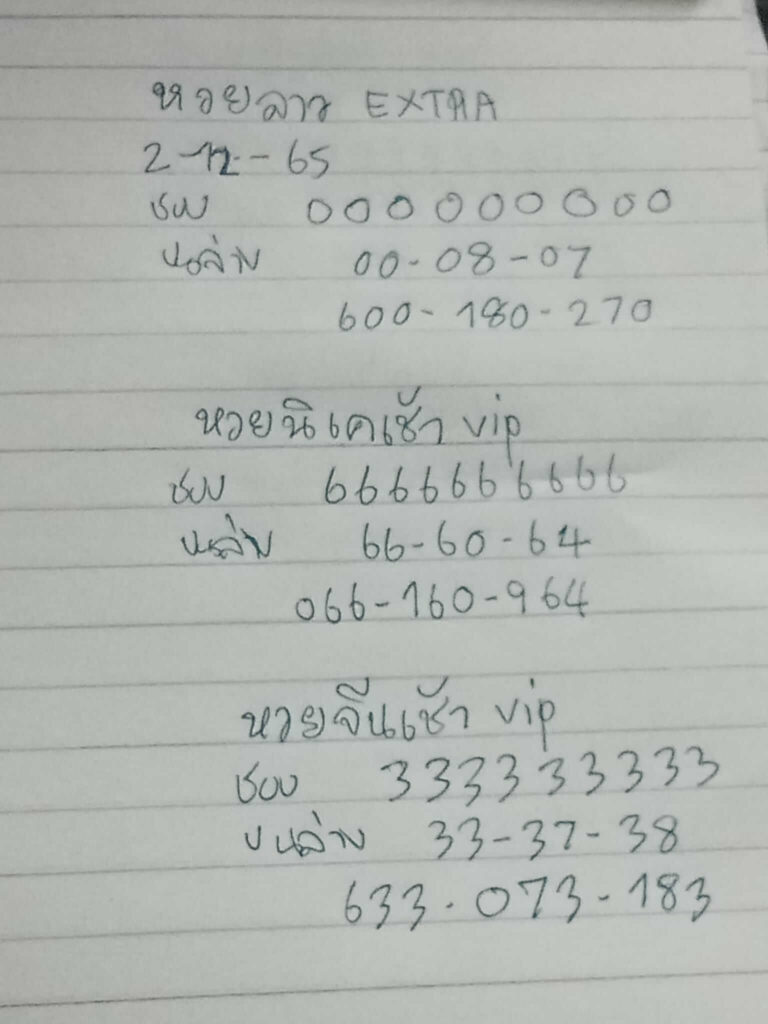 หวยลาว EXTRA
2-12-65
ชอบ 000000000
บนล่าง 00-08-07
600-180-270
หวยนิเคเช้า vip
ชอบ 6666666666
บนล่าง 66-60-64
066-160-964
หวยจีนเช้า vip
ชอบ 333333333
บนล่าง 33-37-38
633-073-183